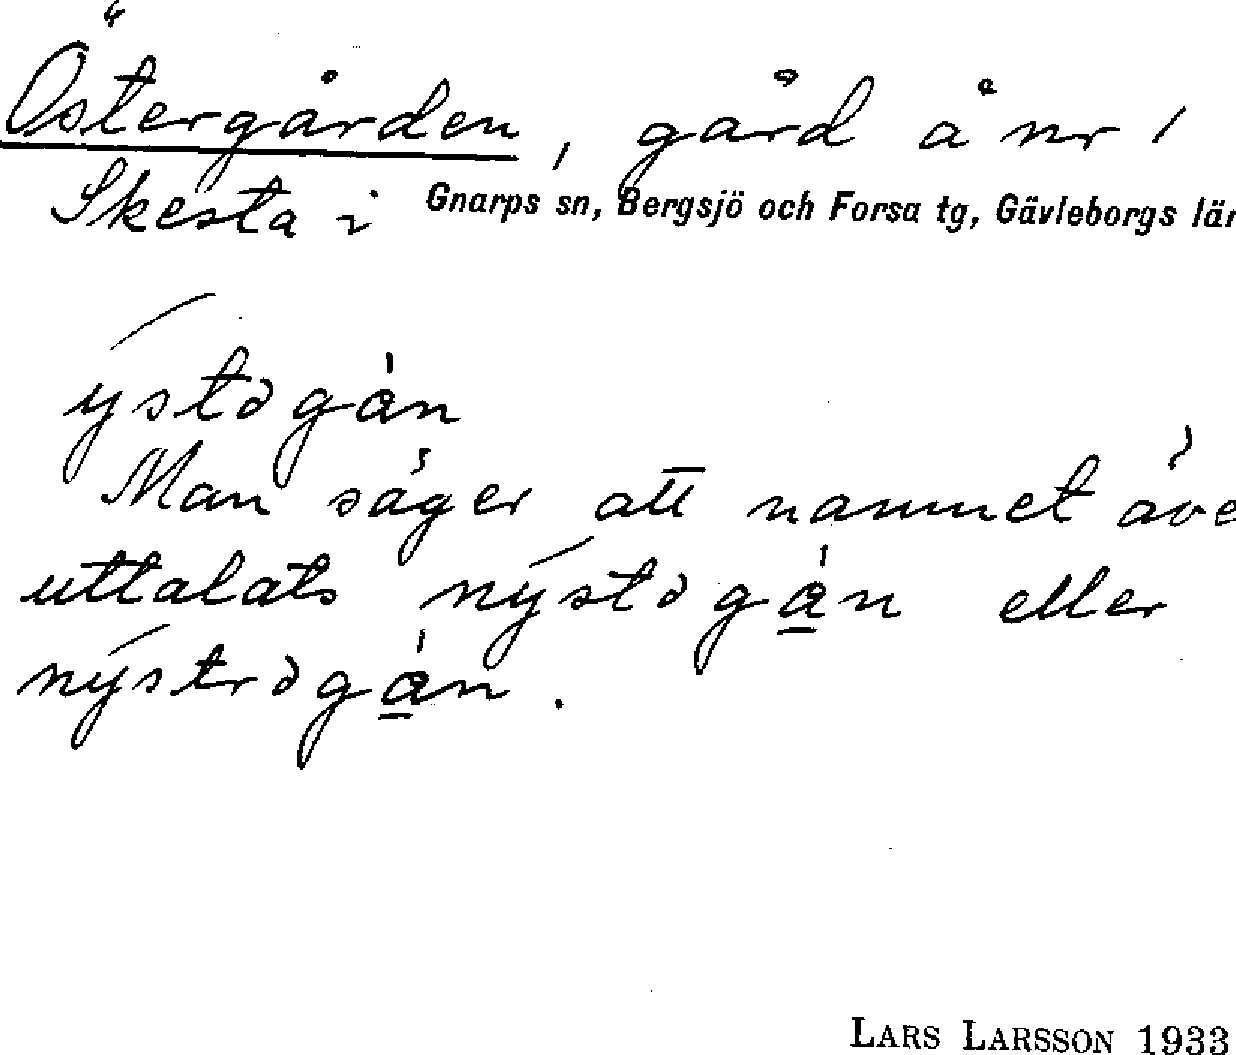 Östergården, gård å nr 1
Skesta i Gnarps sn, Bergsjö och Forsa tg, Gävleborgs län
ýstəgàn
Man säger att namnet äve
uttalats nýstəgàn eller
nýstrəgàn.
LARS LARSSON 1933